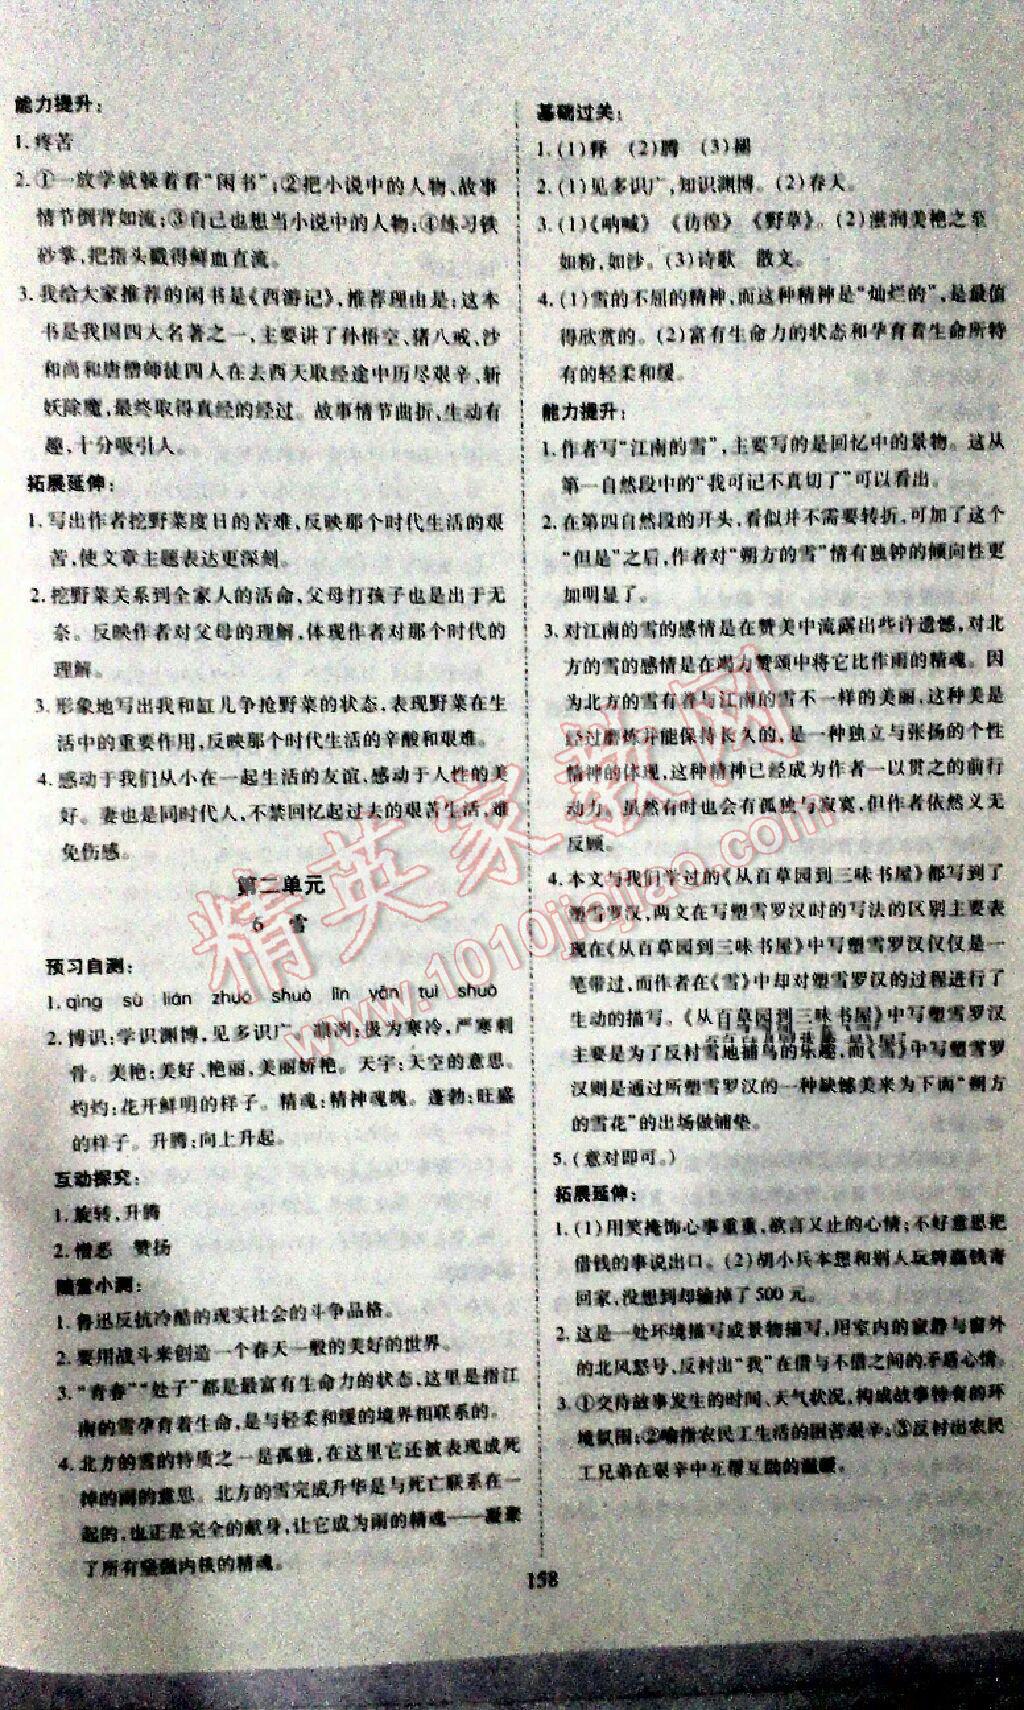 能力提升:
1.疼苦
2.①一放学就躲着看“闲书”;②把小说中的人物、故事
情节倒背如流;③自己也想当小说中的人物;④练习铁
砂掌,把指头戳得鲜血直流。
3.我给大家推荐的闲书是《西游记》,推荐理由是:这本
书是我国四大名著之一,主要讲了孙悟空、猪八戒、沙
和尚和唐僧师徒四人在去西天取经途中历尽艰辛,斩
妖除魔,最终取得真经的经过。故事情节曲折,生动有
趣,十分吸引人。
拓展延伸:
1.写出作者挖野菜度日的苦难,反映那个时代生活的艰
苦,使文章主题表达更深刻。
2.挖野菜关系到全家人的活命,父母打孩子也是出于无
奈。反映作者对父母的理解,体现作者对那个时代的
理解。
3.形象地写出我和缸儿争抢野菜的状态,表现野菜在生
活中的重要作用,反映那个时代生活的辛酸和艰难。
4.感动于我们从小在一起生活的友谊,感动于人性的美
好。妻也是同时代人,不禁回忆起过去的艰苦生活,难
免伤感。
第二单元
6 雪
预习自测:
1.qíng sù lián zhuó shuò lǐn yàn tuì shuò
2.博识:学识渊博,见多识广。凛冽:极为寒冷,严寒刺
骨。美艳:美好、艳丽,美丽娇艳。天宇:天空的意思。
灼灼:花开鲜明的样子。精魂:精神魂魄。蓬勃:旺盛
的样子。升腾:向上升起。
互动探究:
1.旋转,升腾
2.憎恶 赞扬
随堂小测:
1.鲁迅反抗冷酷的现实社会的斗争品格。
2.要用战斗来创造一个春天一般的美好的世界。
3.“青春”“处子”都是最富有生命力的状态,这里是指江
南的雪孕育着生命,是与轻柔和缓的境界相联系的。
4.北方的雪的特质之一是孤独,在这里它还被表现成死
掉的雨的意思。北方的雪完成升华是与死亡联系在一
起的,也正是完全的献身,让它成为雨的精魂——凝聚
了所有坚强内核的精魂。
基础过关:
1.(1)释 (2)腾 (3)褪
2.(1)见多识广,知识渊博。(2)春天。
3.(1)《呐喊》 《彷徨》 《野草》。(2)滋润美艳之至
如粉,如沙。(3)诗歌 散文。
4.(1)雪的不屈的精神,而这种精神是“灿烂的”,是最值
得欣赏的。(2)富有生命力的状态和孕育着生命所特
有的轻柔和缓。
能力提升:
1.作者写“江南的雪”,主要写的是回忆中的景物。这从
第一自然段中的“我可记不真切了”可以看出。
2.在第四自然段的开头,看似并不需要转折,可加了这个
“但是”之后,作者对“朔方的雪”情有独钟的倾向性更
加明显了。
3.对江南的雪的感情是在赞美中流露出些许遗憾,对北
方的雪的感情是在竭力赞颂中将它比作雨的精魂。因
为北方的雪有着与江南的雪不一样的美丽,这种美是
经过磨炼并能保持长久的,是一种独立与张扬的个性
精神的体现,这种精神已经成为作者一以贯之的前行
动力。虽然有时也会有孤独与寂寞,但作者依然义无
反顾。
4.本文与我们学过的《从百草园到三味书屋》都写到了
塑雪罗汉,两文在写塑雪罗汉时的写法的区别主要表
现在《从百草园到三味书屋》中写塑雪罗汉仅仅是一
笔带过,而作者在《雪》中却对塑雪罗汉的过程进行了
生动的描写。《从百草园到三味书屋》写塑雪罗汉
主要是为了反衬雪地捕鸟的乐趣,而《雪》中写塑雪罗
汉则是通过所塑雪罗汉的一种缺憾美来为下面“朔方
的雪花”的出场做铺垫。
5.(意对即可。)
拓展延伸:
1.(1)用笑掩饰心事重重,欲言又止的心情;不好意思把
借钱的事说出口。(2)胡小兵本想和别人玩牌赢钱寄
回家,没想到却输掉了500元。
2.这是一处环境描写或景物描写,用室内的寂静与窗外
的北风怒号,反衬出“我”在借与不借之间的矛盾心情。
3.①交待故事发生的时间、天气状况,构成故事特有的环
境氛围;②喻指农民工生活的困苦艰辛;③反衬出农民
工兄弟在艰辛中互帮互助的温暖。
158
精英家教网
www.1010jiajiao.com